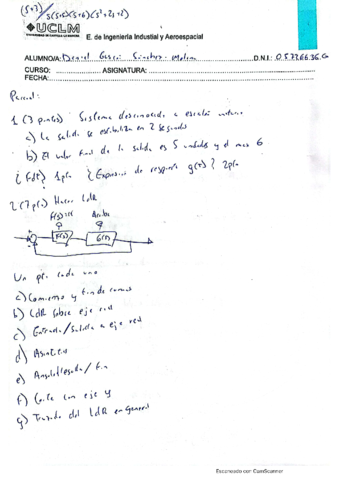 (s+3)/s(s+5)(s+6)(s²+2s+2)
UCLM
E. de Ingeniería Industrial y Aeroespacial
ALUMNO/A: Daniel García Sánchez- D.N.I.:
CURSO: ASIGNATURA:
FECHA:
Parcial:
1 (3 puntos) Sistema desconocido a escalón unitario
a) La salida se estabiliza en 2 segundos
b) El valor final de la salida es 5 unidades y el max 6
¿Fdt? 1pto {Expresión de respuesta y(t)} 2pto
2 (7p) Hacer LdR
F(s) G(s)
Un pto cada uno
a) Comienzo y fin de ramas
b) LdR sobre eje real
c) Entrada/Salida a eje real
d) Asíntotas
e) Angulo llegada/
f) Corte con eje y
g) Trazado del LdR en general
Escaneado con CamScanner